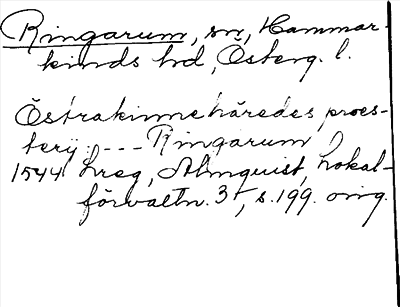 Ringarum, sn, Hammar-
kinds hd, Österg. l.
Östrakinnehäredes proes-
terij: --- Ringarum
1544 Lreg, Almquist, Lokal-
förvaltn. 3, s. 199. orig.